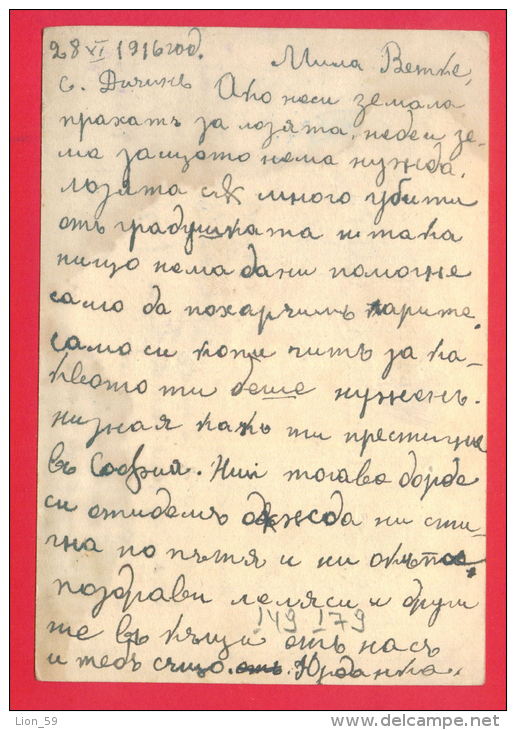 28 XI 1916 год.
Мила Ветке,
с. Дичинъ
Ако неси земала
прахатъ за лозята, недеи зе-
ма защото нема нужда.
лозята сѫ много убити
отъ градушката и така
нищо нема да ни помогне
само да похарчимъ парите.
само си купи читъ за ка-
квото ти беше нуженъ.
низная какъ ти престигна
въ София. Нии тогава борде
си отидемъ дъжда ни сти-
гна по пътя и ни окъпа
поздрави леляси и други
те въ къщи отъ насъ
149 179
и тебъ също. Юрданка.
Lion_59
www.delcampe.net